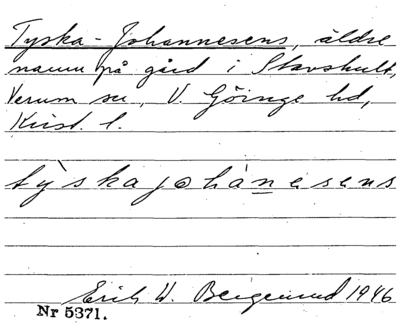 Tyska-Johannesens, äldre
namn på gård i Stavshult,
Verum sn, V. Göinge hd,
Krist. l.
tỳskajohànesens
Erik W. 1946
Nr 5371.